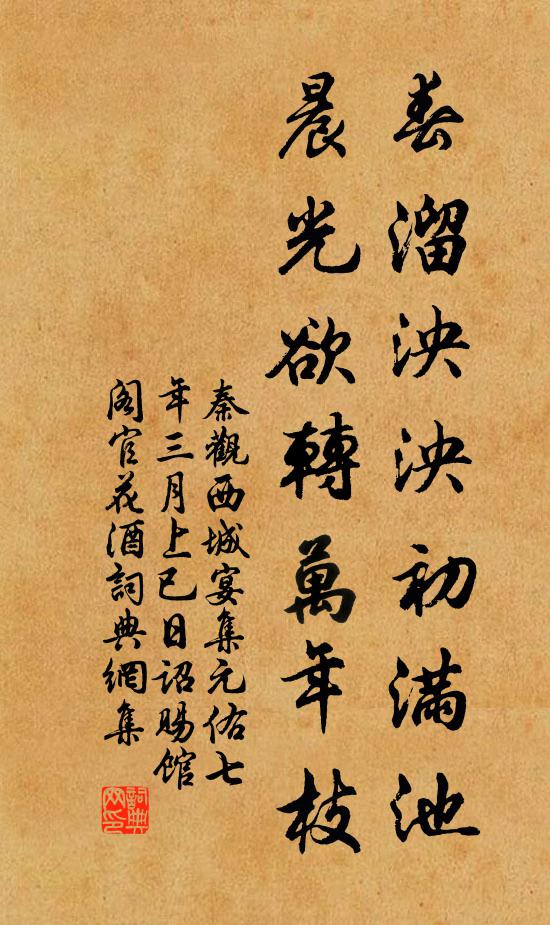 春溜泱泱初滿池
晨光欲轉萬年枝
秦觀西城宴集元佑七
年三月上巳日詔賜館
閣官花酒詞典網集
詞典
网印